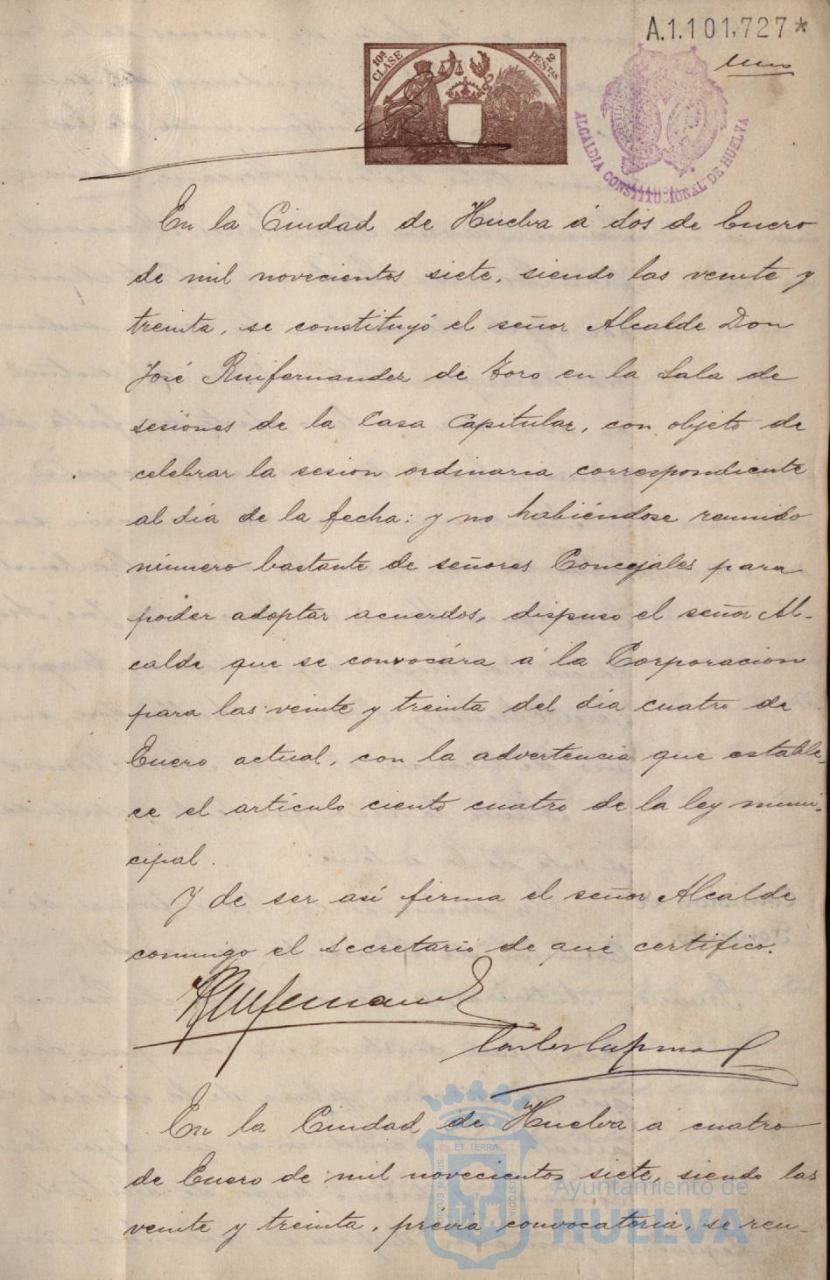 A.1.101,727*
10ª CLASE
2 PESETAS
uno
ALCALDIA CONSTITUCIONAL DE HUELVA
En la Ciudad de Huelva á dos de Enero
de mil novecientos siete, siendo las veinte y
treinta, se constituyó el señor Alcalde Don
José Ruifernandez de Toro en la Sala de
sesiones de la Casa Capitular, con objeto de
celebrar la sesion ordinaria correspondiente
al día de la fecha: y no habiéndose reunido
número bastante de señores Concejales para
poder adoptar acuerdos, dispuso el señor Al-
calde que se convocára á la Corporacion
para las veinte y treinta del día cuatro de
Enero actual, con la advertencia que estable-
ce el artículo ciento cuatro de la ley muni-
cipal.
Y de ser así firma el señor Alcalde
conmigo el secretario de que certifico.
En la Ciudad de Huelva a cuatro
de Enero de mil novecientos siete, siendo las
veinte y treinta, previa convocatoria, se reu-
ET TERRA
Ayuntamiento de
HUELVA